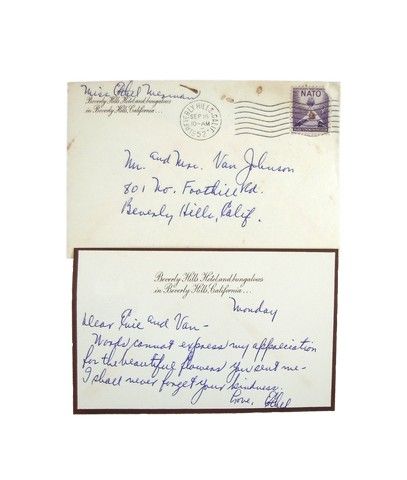 Miss Ethel Merman
Beverly Hills Hotel and bungalows
in Beverly Hills, California...
BEVERLY HILLS, CALIF.
SEP 15
10-AM
1952
NATO
Mr. and Mrs. Van Johnson
801 No. Foothill Rd.
Beverly Hills, Calif.
Beverly Hills Hotel and bungalows
in Beverly Hills, California...
Monday
Dear Evie and Van -
Words cannot express my appreciation
for the beautiful flowers you sent me -
I shall never forget your kindness.
Love, Ethel